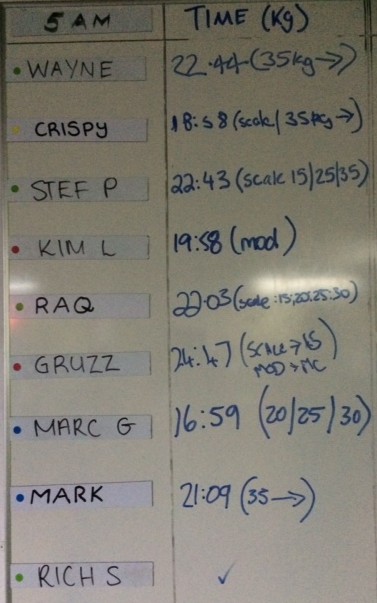 5 AM TIME (Kg)
WAYNE 22.44 (35kg →)
CRISPY 18:58 (scale/35kg →)
STEF P 22:43 (scale 15/25/35)
KIM L 19:58 (mod)
RAQ 22:03 (scale:15,20,25,30)
GRUZZ 24:47 (SCALE → 15
MOD → MC)
MARC G 16:59 (20/25/30)
MARK 21:09 (35 →)
RICH S ✓